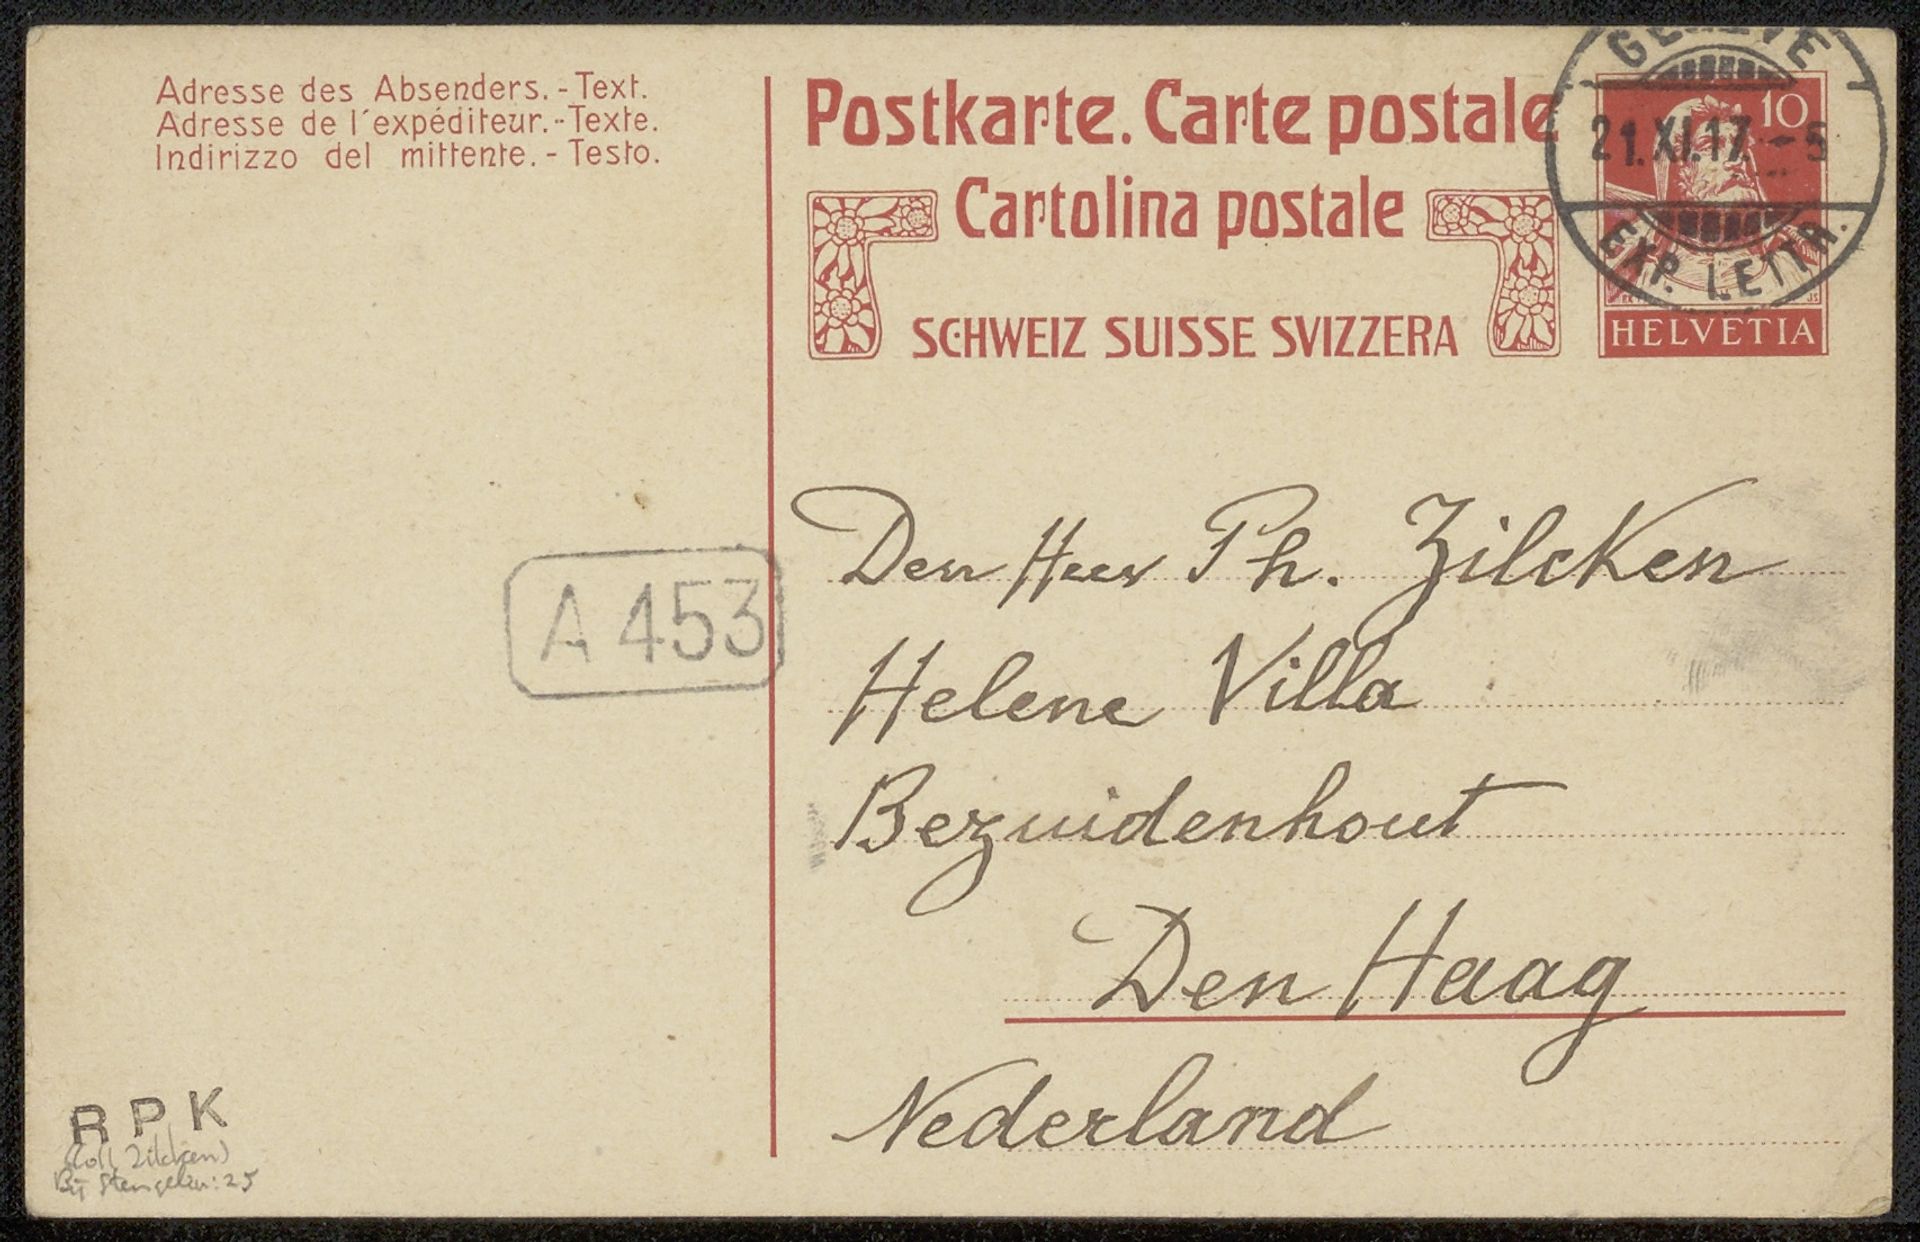 Adresse des Absenders. - Text.
Adresse de l'expéditeur. - Texte.
Indirizzo del mittente. - Testo.
Postkarte. Carte postale
Cartolina postale
SCHWEIZ SUISSE SVIZZERA
GENÈVE
21.XI.17. - 5
EXP. LETTR.
10
HELVETIA
A 453
Den Heer Ph. Zilcken
Helene Villa
Bezuidenhout
Den Haag
Nederland
RPK
(Coll. Zilcken)